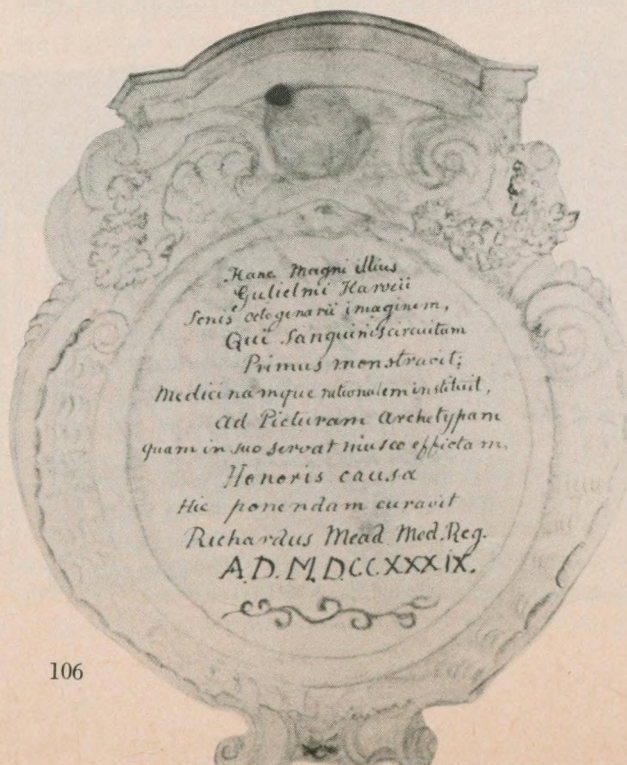 Hanc Magni illius
Gulielmi Harveii
Senis octogenarii imaginem,
Qui Sanguinis circuitum
Primus monstravit;
Medicinamque rationalem instituit,
ad Picturam archetypam
quam in suo servat musco effictam,
Honoris causa
Hic ponendam curavit
Richardus Mead Med. Reg.
A.D. M.DCCXXXIX.
106